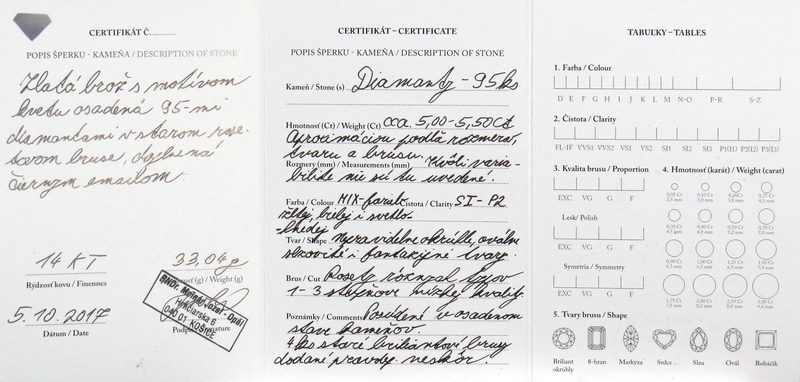 CERTIFIKÁT Č.
POPIS ŠPERKU - KAMEŇA / DESCRIPTION OF STONE
Zlatá brož s motívom
kvetu osadená 95-mi
diamantami v starom roze-
tovom bruse, doplnená
čiernym emailom.
14 KT
33,04g
Rýdzosť kovu / Finennes
Hmotnosť (g) / Weight (g)
5.10.2017
Dátum / Date
Podpis / Signature
RNDr. Molnár Jozef - Opál
Hlinkárska 6
040 01 KOŠICE
CERTIFIKÁT – CERTIFICATE
POPIS ŠPERKU - KAMEŇA / DESCRIPTION OF STONE
Kameň / Stone (s) Diamanty - 95ks
Hmotnosť (Ct) / Weight (Ct) cca. 5,00-5,50Ct
Aproximáciou podľa rozmerov,
tvaru a brusu.
Rozmery (mm) / Measurements (mm) Kvôli varia-
bilite nie sú tu uvedené.
Farba / Colour MIX-farieb Čistota / Clarity SI - P2
žltej, bielej i svetlo-
hnedej
Tvar / Shape nepravidelne okrúhle, oválne
slzovité i fantazijné tvary.
Brus / Cut Rosety rôznych typov
1-3 stupňové nízkej kvality.
Poznámky / Comments Posúdené v osadenom
stave kameňov.
4 ks staré briliantové brusy
dodané pravdep. neskôr.
TABUĽKY – TABLES
1. Farba / Colour
D E F G H I J K L M N-O P-R S-Z
2. Čistota / Clarity
FL-IF VVS1 VVS2 VS1 VS2 SI1 SI2 SI3 P1(I1) P2(I2) P3(I3)
3. Kvalita brusu / Proportion
EXC VG G F
Lesk / Polish
EXC VG G F
Symetria / Symmetry
EXC VG G F
4. Hmotnosť (karát) / Weight (carat)
5. Tvary brusu / Shape
Briliant okrúhly
8-hran
Markýza
Srdce
Slza
Ovál
Roháčik